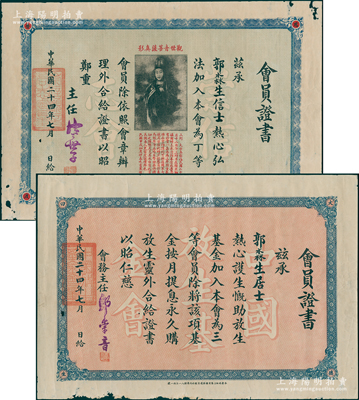 會員證書
茲承
郭森生信士熱心弘
法加入本會為丁等
觀世音菩薩真影
會員除依照會章辦
理外合給證書以昭
鄭重
主任
中華民國二十四年七月 日給
會員證書
茲承
郭森生居士
熱心護生慨助放生
基金加入本會為三
等會員除將該項基
金按月提息永久購
放生靈外合給證書
以昭仁慈
會務主任
中華民國二十四年七月 日給
上海陽明拍賣有限公司